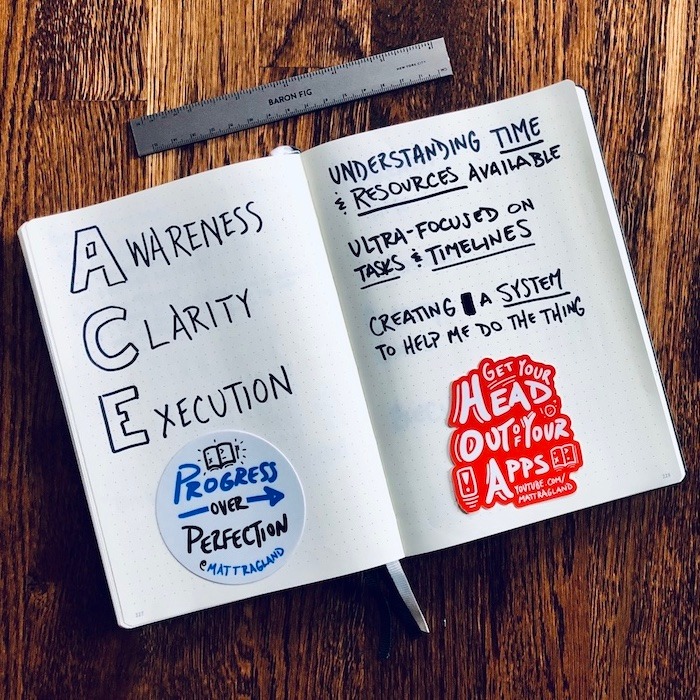 BARON FIG
AWARENESS
CLARITY
EXECUTION
PROGRESS
OVER
PERFECTION
@MATTRAGLAND
UNDERSTANDING TIME
& RESOURCES AVAILABLE
ULTRA-FOCUSED ON
TASKS & TIMELINES
CREATING A SYSTEM
TO HELP ME DO THE THING
GET YOUR
HEAD
OUT OF YOUR
APPS
YOUTUBE.COM/
MATTRAGLAND